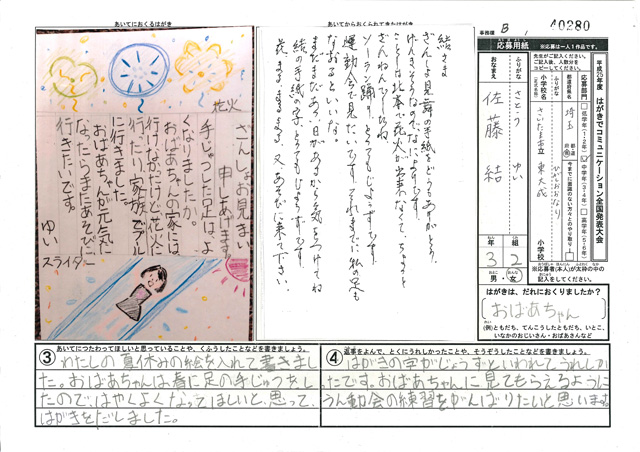 事務欄 B 40280
あいてにおくるはがき
花火
ざんしょお見まい
申しあげます。
手じゅつした足はよ
くなりましたか。
おばあちゃんの家には
行けなかたけど花火た
に行きました。
おばあちゃんが元気に
なったらまたあそびに
行きたいです。
ゆい
スライダー
あいてからおくられてきたはがき
結さま
ざんしょ見舞の手紙をどうもありがとう。
ざんねんでしたね
ソーラン踊り、とてもじょうずです。
運動会で見たいです。それまでに私の足も
なおるといいな。
まだまだあつい日があるから気をつけてね
結の手紙の字とてもじょうずです。
又あそびに来て下さい。
平成25年度 はがきでコミュニケーション全国発表大会
応募用紙
※応募は一人1作品です。
先生がご記入ください。
ご記入後、人数分を
コピーしてください。
応募部門
低学年(1・2年)
中学年(3・4年)
高学年(5・6年)
都道府県名
埼玉
都 道 府 県
ふりがな
小学校名
さいたま市立
ひがしおおなり
東大成
小学校
おなまえ
ふりがな
さとう ゆい
佐藤 結
3 年
2 組
男・女
※応募者(本人)が太枠の中の
記入をしてください。
はがきは、だれにおくりましたか?
おばあちゃん
(例)ともだち、てんこうしたともだち、いとこ、
いなかのおじいさん・おばあさんなど
③ あいてにつたわってほしいと思っていることや、くふうしたことなどを書きましょう。
わたしの夏休みの絵を入れて書きまし
た。おばあちゃんは春に足の手じゅつをし
たので、はやくよくなってほしいと思って、
はがきをだしました。
④ 返事をよんで、とくにうれしかったことや、そうぞうしたことなどを書きましょう。
はがきの字がじょうずといわれてうれしかっ
たです。おばあちゃんに見てもらえるように
うん動会の練習をがんばりたいと思います。